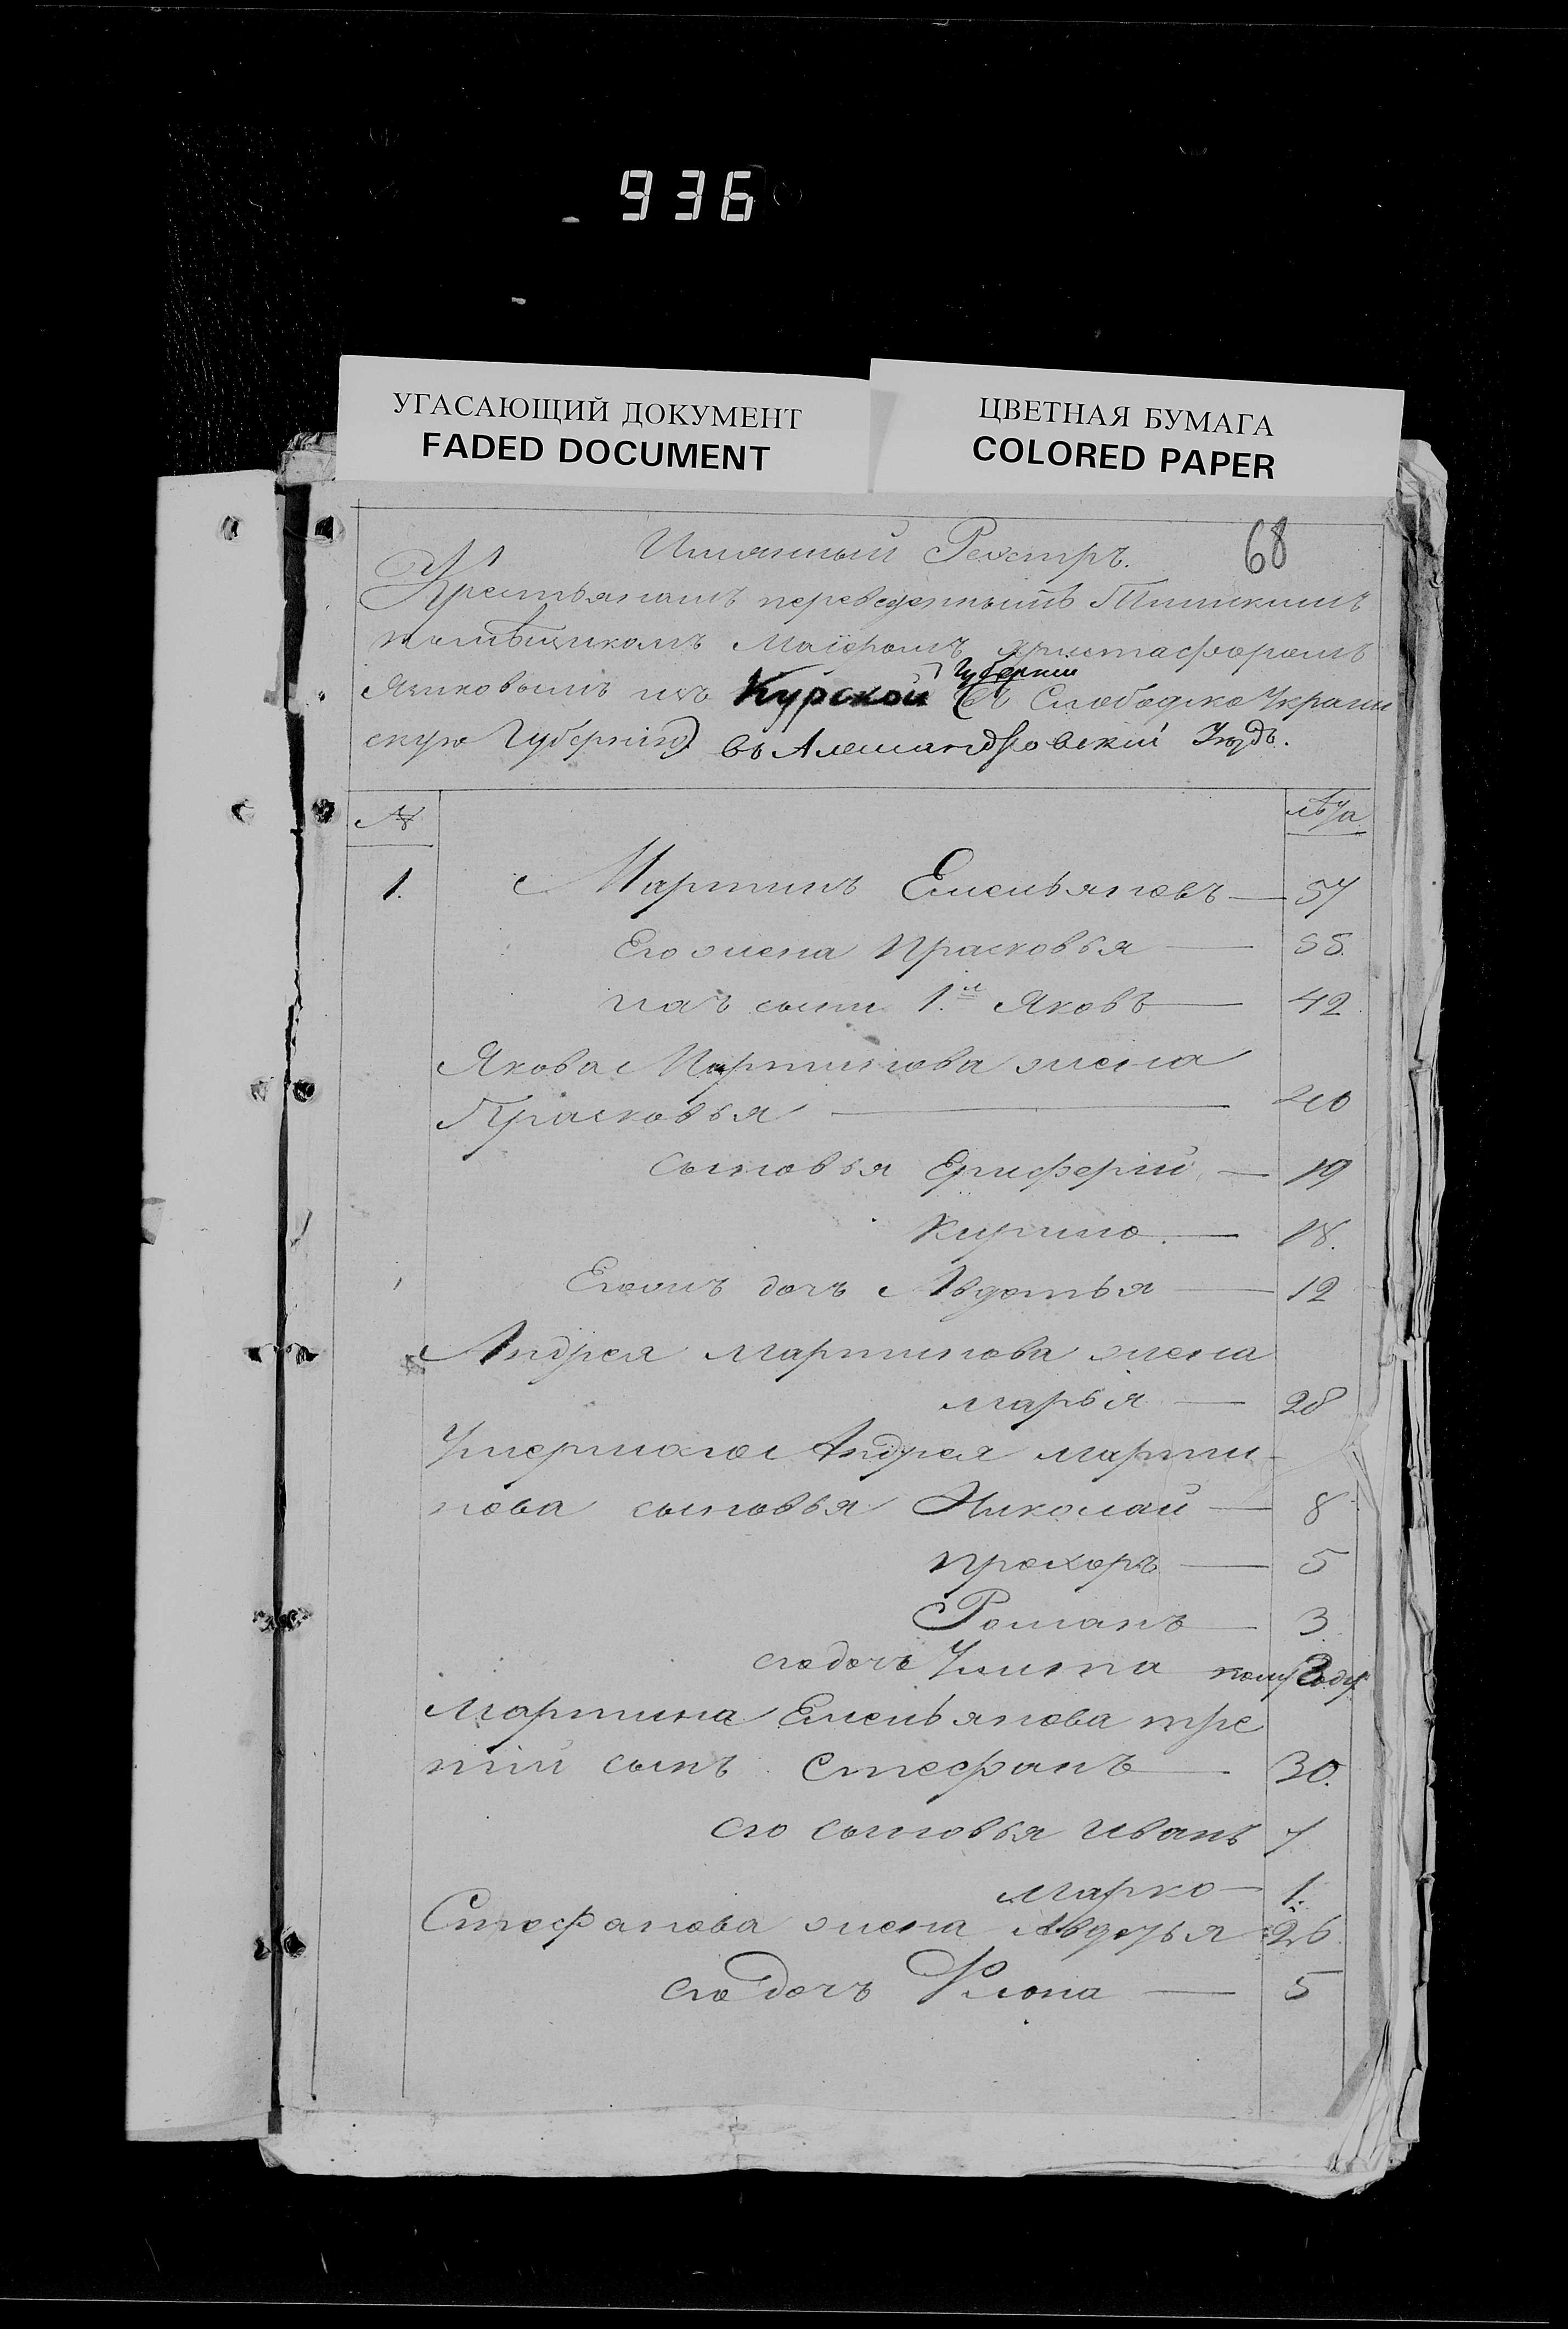 936
УГАСАЮЩИЙ ДОКУМЕНТ
FADED DOCUMENT
ЦВЕТНАЯ БУМАГА
COLORED PAPER
Имянный Реэстръ.
68
Крестьянамъ переведеннымъ
помѣщикомъ Маіоромъ Христофоромъ
изъ Курской Губерніи въ Слободско Украин
скую Губернію въ Уѣздъ.
№
лѣта
1. Мартинъ Емельяновъ 57
Его жена Прасковья 55.
ихъ сыны 1.й Яковъ 42
Якова Мартинова жена
Прасковья 40
сыновья Елиферій 19
Кирило. 18.
Его дочь Авдотья 12
Андрея Мартинова жена
марья 28
Умершаго Андрея марти
нова сыновья Николай 8
прохоръ 5
Романъ 3
его дочь Улита полугоду
Мартина Емельянова тре
тій сынъ Стефанъ 30.
его сыновья Иванъ 7
Марко 1.
Стефанова жена Авдотья 26
его дочь 5